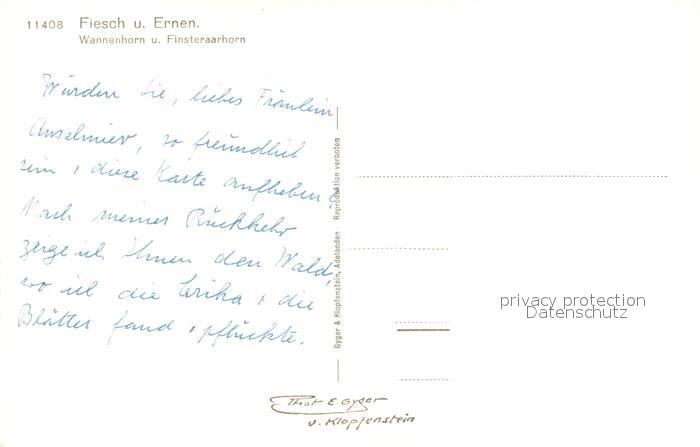 11408 Fiesch u. Ernen.
Wannenhorn u. Finsteraarhorn
Würden Sie, liebes Fräulein
Anselmier, so freundlich
sein, diese Karte aufheben?
Nach meiner Rückkehr
zeige ich Ihnen den Wald,
wo ich die Erika + die
Blätter fand + pflückte.
Gyger & Klopfenstein, Adelboden Reproduktion verboten
privacy protection
Datenschutz
Phot E. Gyger
u. Klopfenstein